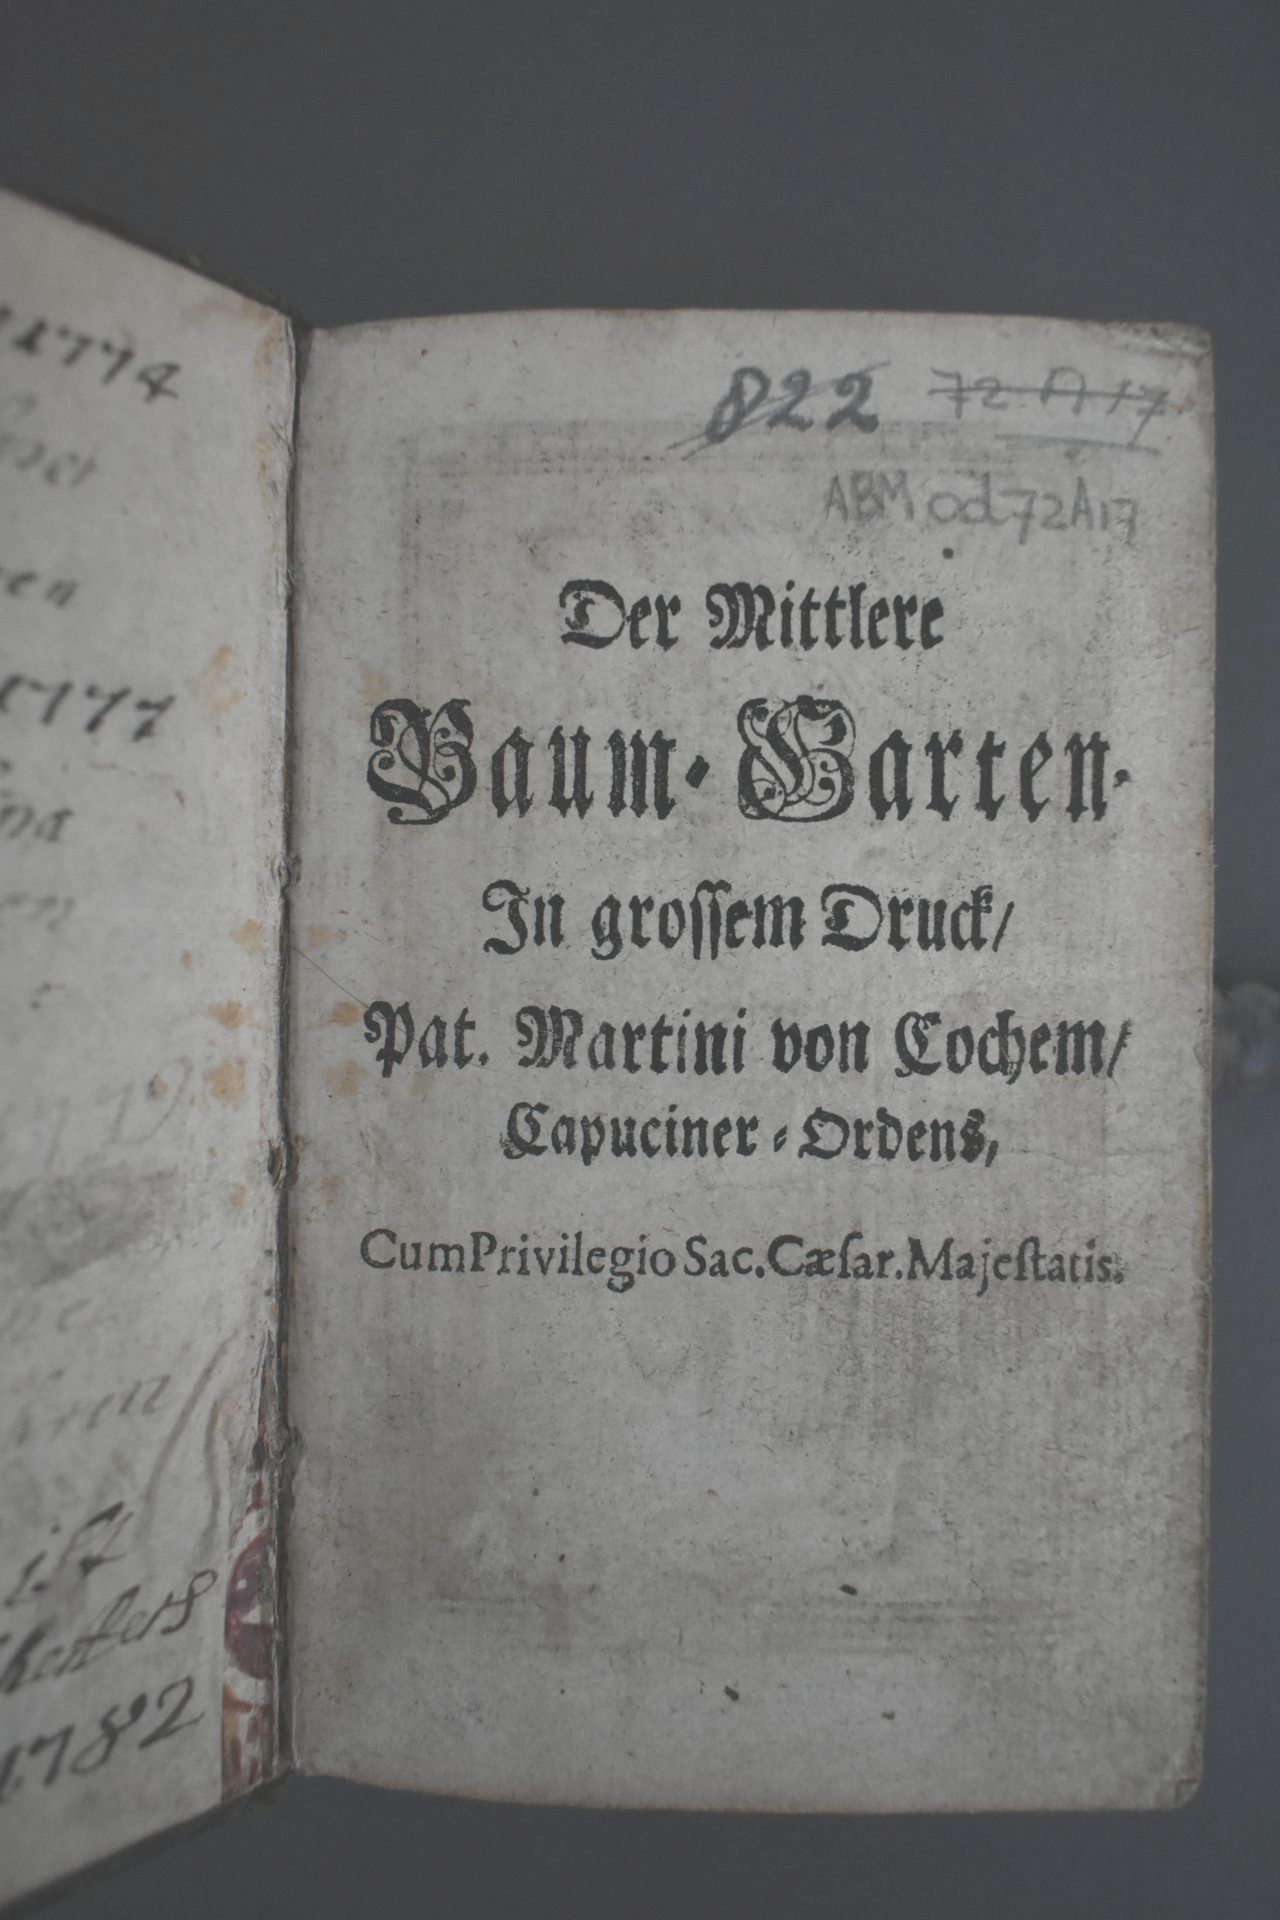 1774
en
1777
na
en
1779
ist
1782
822 72 A 17
ABM od 72A17
Der Mittlere
Baum-Garten-
In grossem Druck/
Pat. Martini von Cochem/
Capuciner-Ordens,
Cum Privilegio Sac. Cæſar. Majeſtatis.